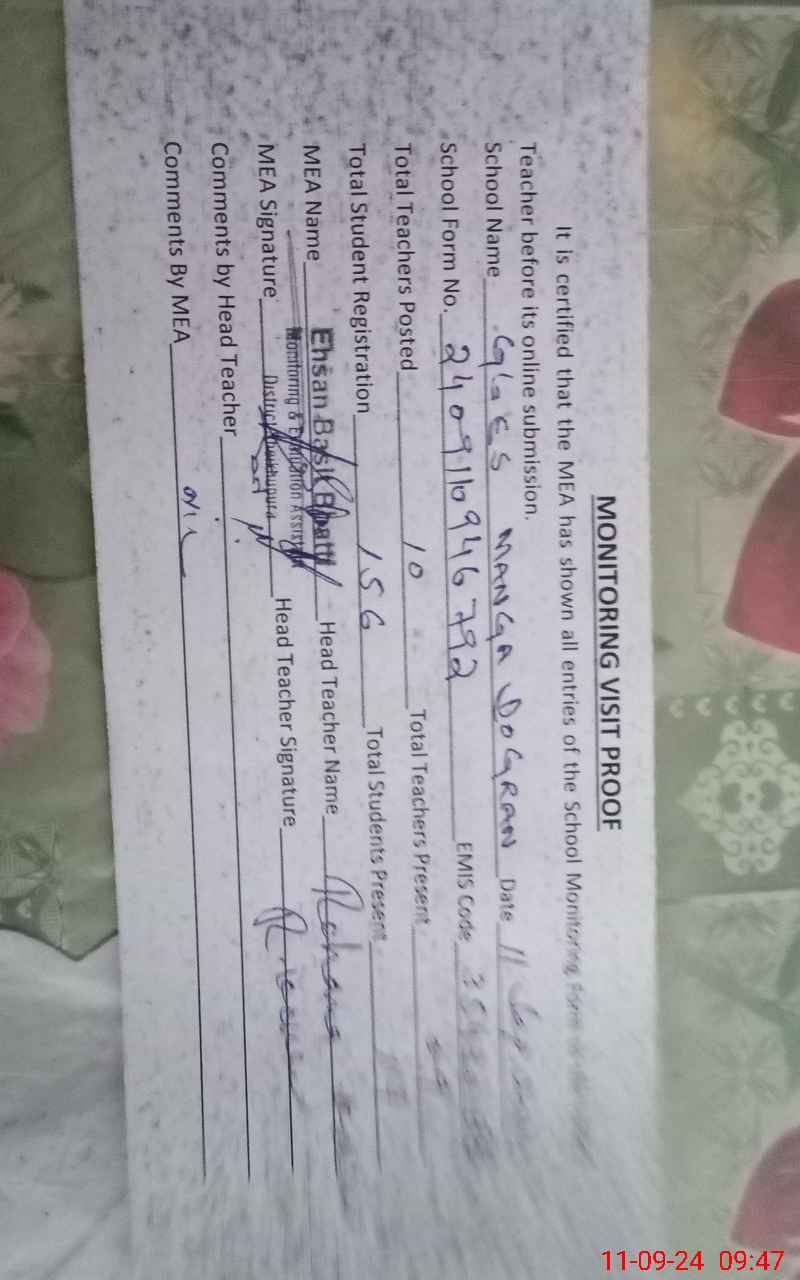 MONITORING VISIT PROOF
It is certified that the MEA has shown all entries of the School Monitoring Form
Teacher before its online submission.
School Name GGES MANGA DOGRAN Date 11
School Form No. 240911094679 2 EMIS Code
Total Teachers Posted 10 Total Teachers Present
Total Student Registration 156 Total Students Present
MEA Name Ehsan Basit Bhatti Head Teacher Name
Monitoring & Evaluation Assistant
MEA Signature District Sheikhupura Head Teacher Signature
Comments by Head Teacher
Comments By MEA Nil
11-09-24 09:47